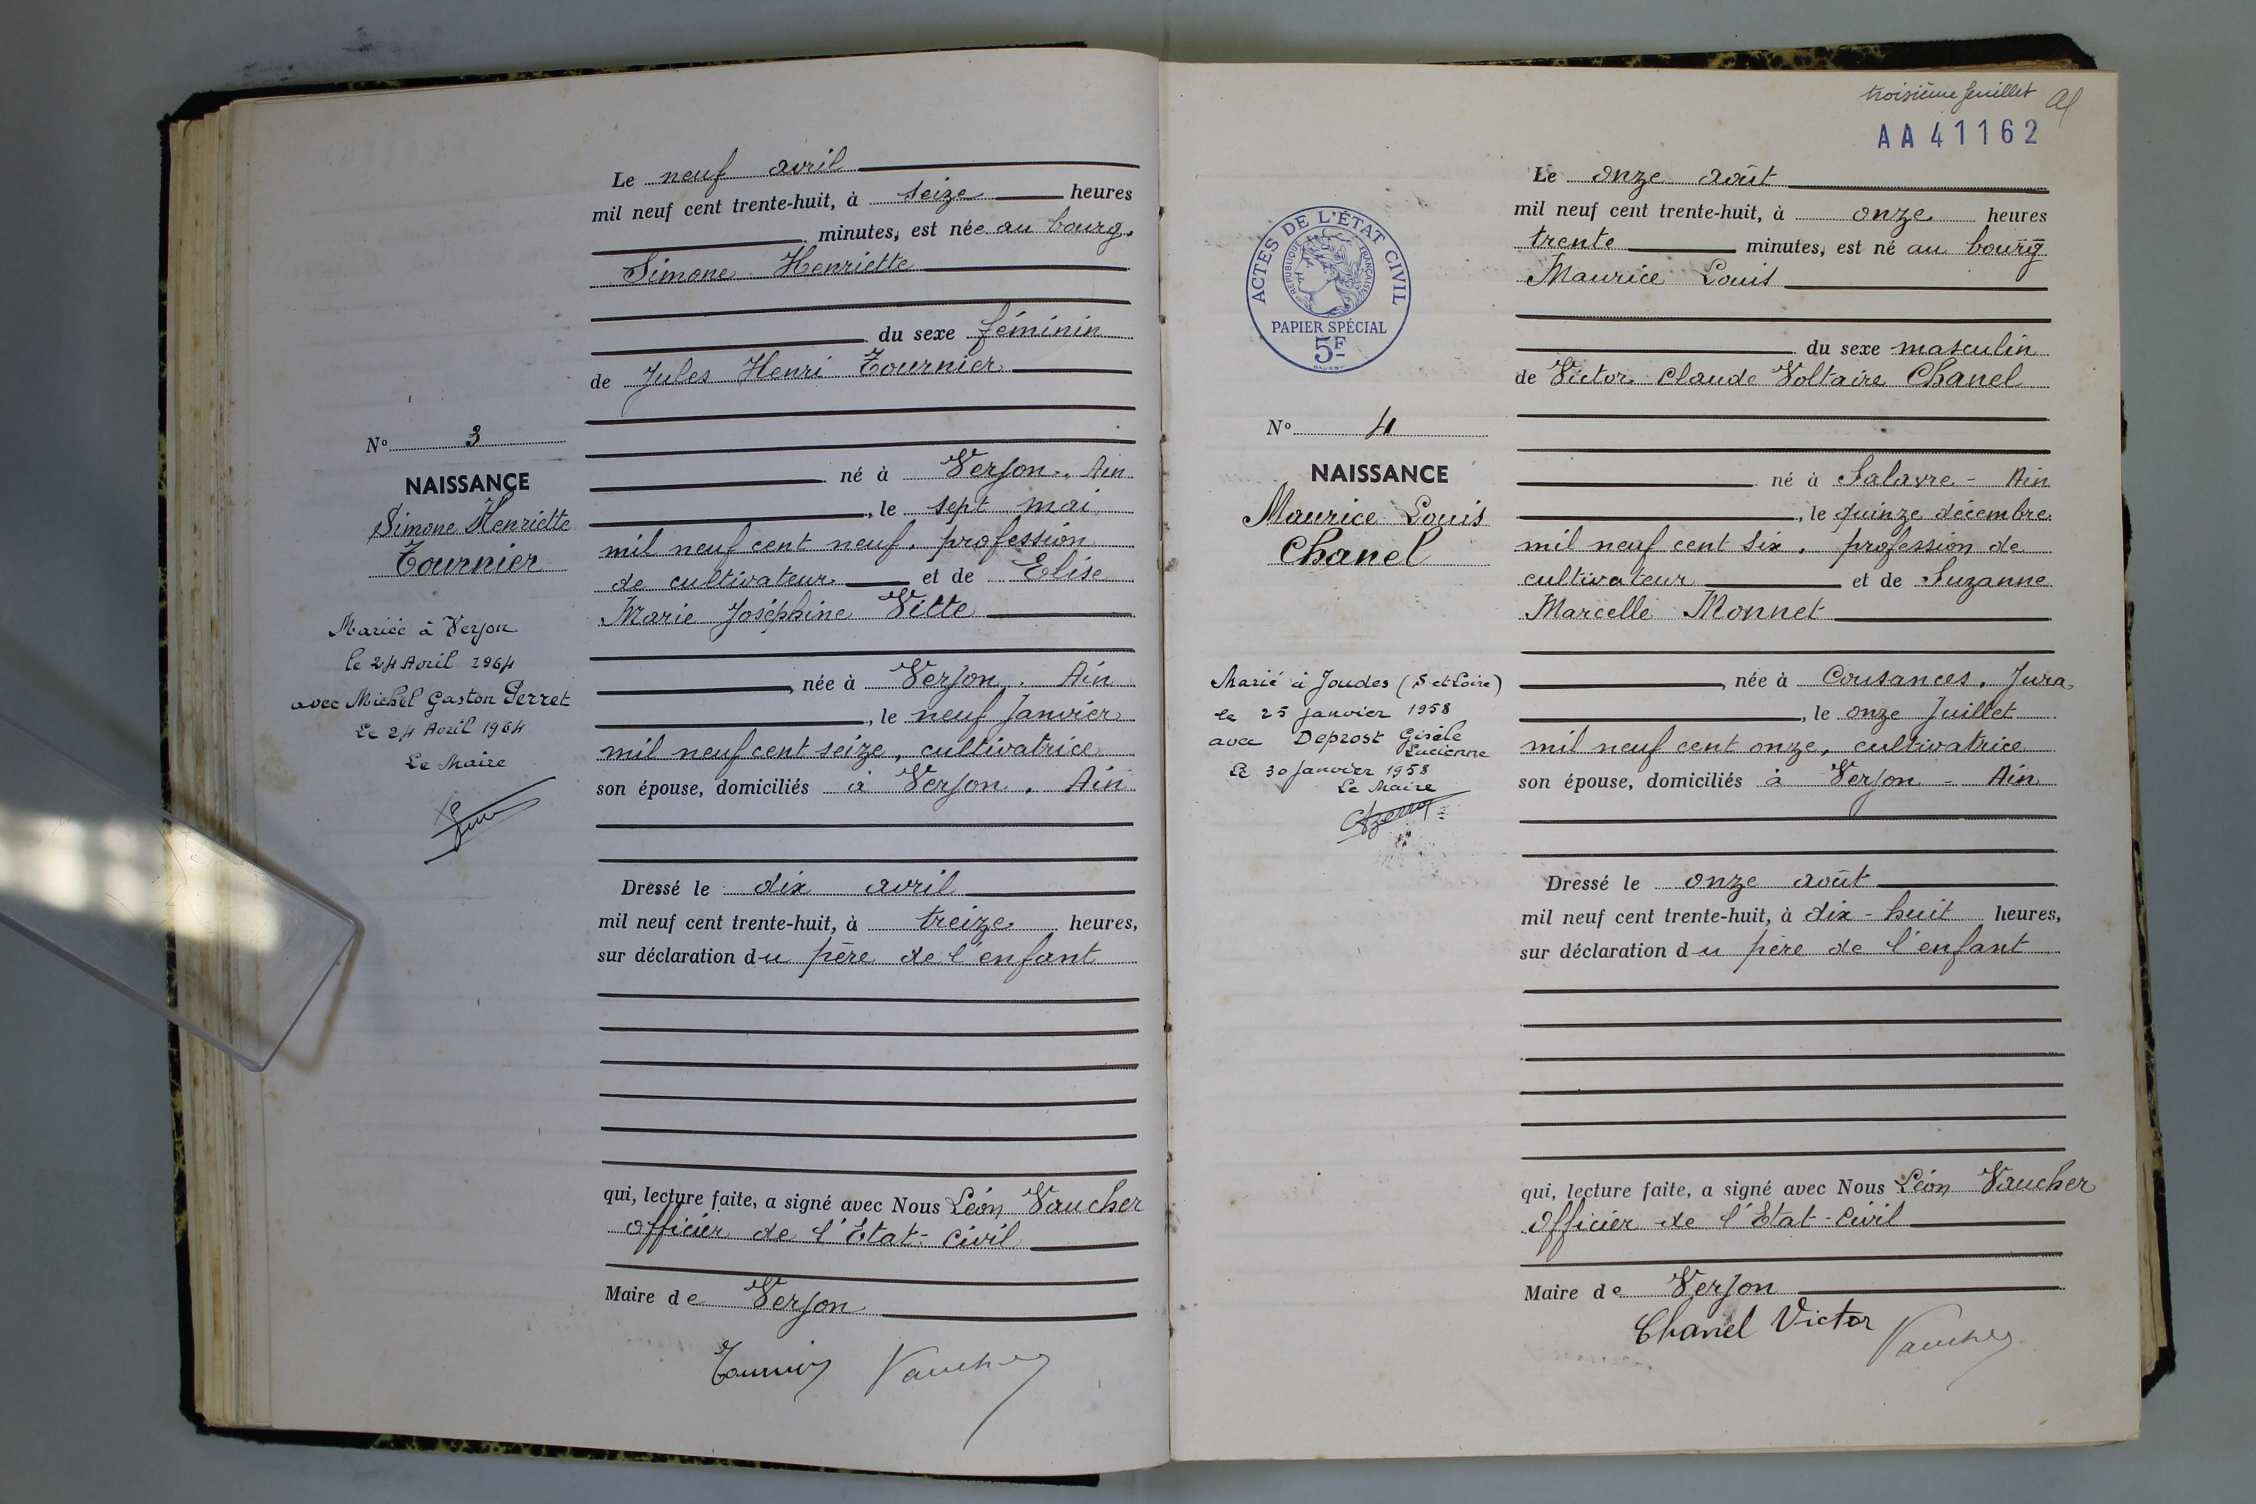 Le neuf avril
mil neuf cent trente-huit, à seize heures
minutes, est née au bourg.
Simone Henriette
du sexe féminin
de Jules Henri Tournier
né à Verjon. Ain
, le sept mai
mil neuf cent neuf. profession
de cultivateur et de Elise
Marie Joséphine Vitte
, née à Verjon. Ain
, le neuf Janvier
mil neuf cent seize, cultivatrice
son épouse, domiciliés à Verjon. Ain
Dressé le dix avril
mil neuf cent trente-huit, à treize heures,
sur déclaration du père de l'enfant
qui, lecture faite, a signé avec Nous Léon Vaucher
Officier de l'Etat-Civil
Maire de Verjon
Vaucher
N° 3
NAISSANCE
Simone Henriette
Tournier
Mariée à Verjon
le 24 Avril 1964
avec Michel Gaston Perret
Le 24 Avril 1964
Le Maire
troisième feuillet
AA 41162
Le onze août
mil neuf cent trente-huit, à onze heures
trente minutes, est né au bourg
Maurice Louis
du sexe masculin
de Victor Claude Voltaire Chanel
né à Salavre - Ain
, le quinze décembre
mil neuf cent six. profession de
cultivateur et de Suzanne
Marcelle Monnet
, née à Cousances. Jura
, le onze Juillet
mil neuf cent onze, cultivatrice
son épouse, domiciliés à Verjon - Ain
Dressé le onze août
mil neuf cent trente-huit, à dix-huit heures,
sur déclaration du père de l'enfant
qui, lecture faite, a signé avec Nous Léon Vaucher
Officier de l'Etat-Civil
Maire de Verjon
Chanel Victor
Vaucher
ACTES DE L'ÉTAT CIVIL
RÉPUBLIQUE FRANÇAISE
PAPIER SPÉCIAL
5F
N° 4
NAISSANCE
Maurice Louis
Chanel
Marié à Joudes (S et Loire)
le 25 janvier 1958
avec Deprost Gisèle
Lucienne
Le 30 janvier 1958
Le Maire